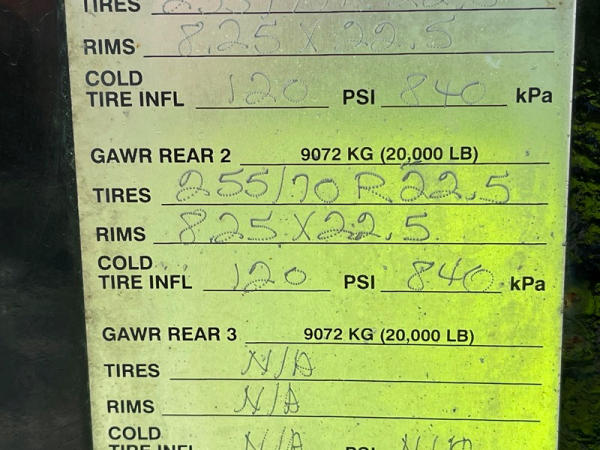 TIRES 255/70 R 22.5
RIMS 8.25 X 22.5
COLD
TIRE INFL 120 PSI 840 kPa
GAWR REAR 2 9072 KG (20,000 LB)
TIRES 255/70 R 22.5
RIMS 8.25 X 22.5
COLD
TIRE INFL 120 PSI 840 kPa
GAWR REAR 3 9072 KG (20,000 LB)
TIRES N/A
RIMS N/A
COLD
TIRE INFL N/A PSI N/A